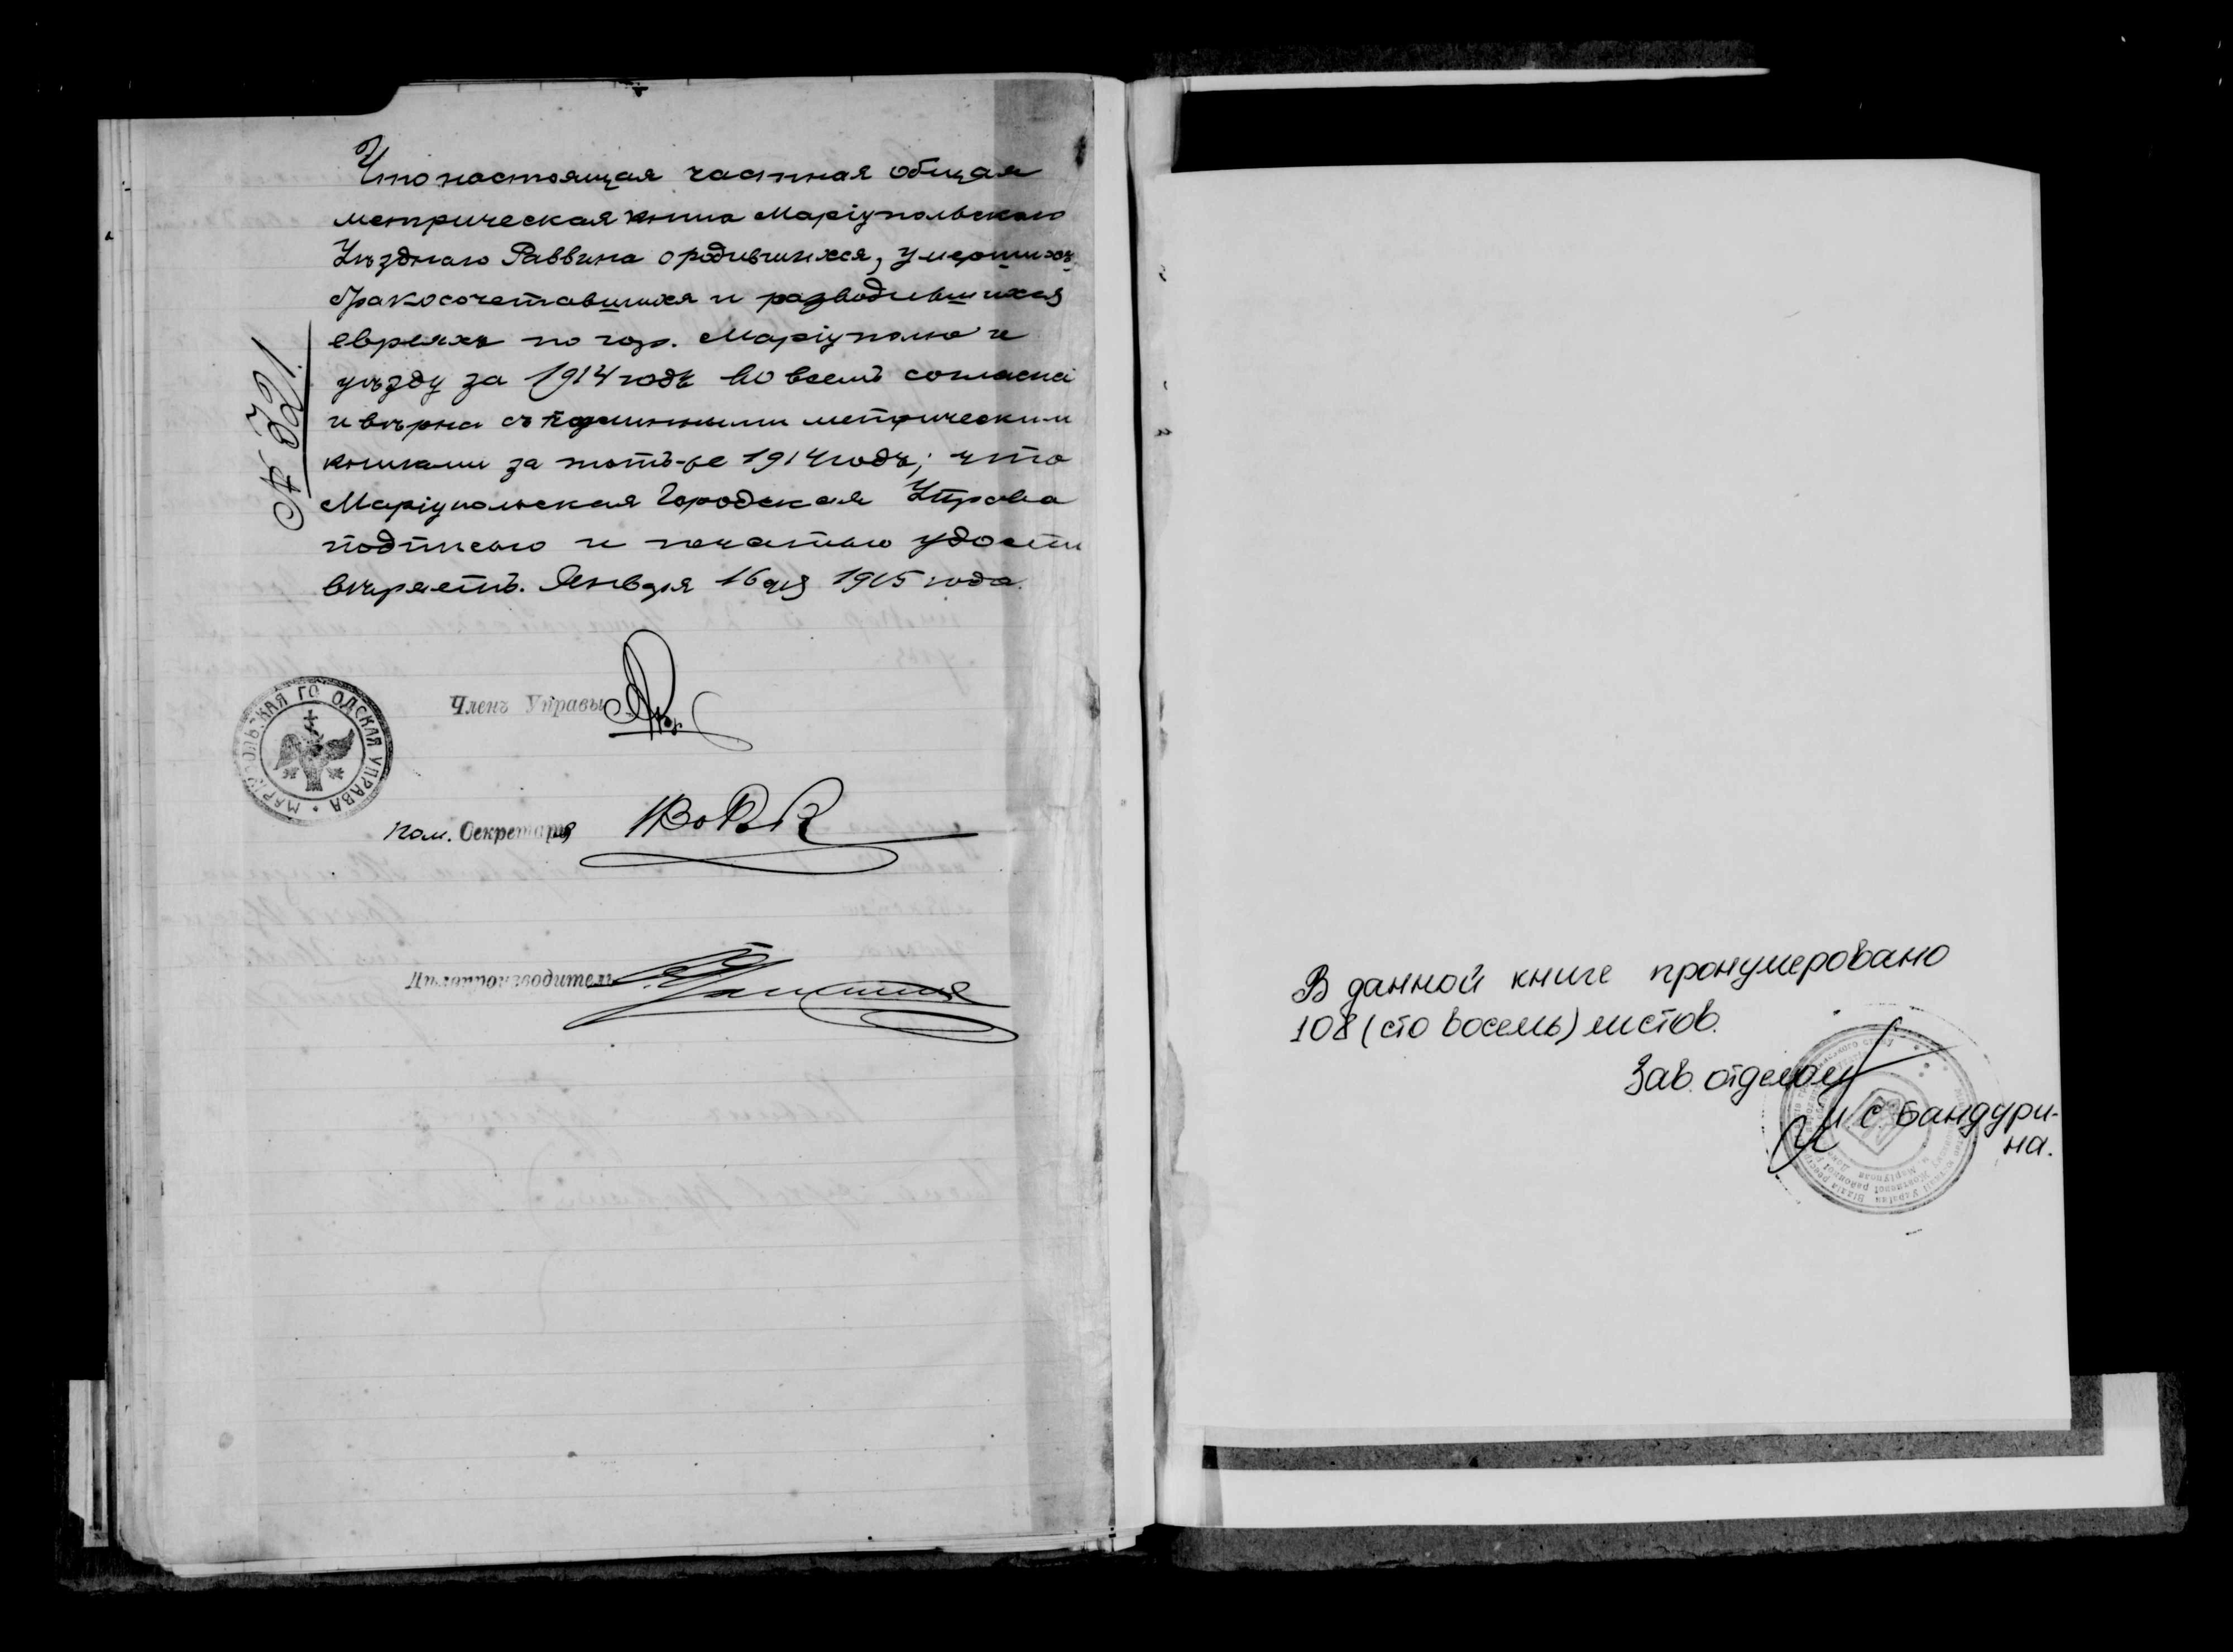 Что настоящая частная общая
метрическая книга Маріупольскаго
Уѣзднаго Раввина о родившихся, умершихъ
бракосочетавшихся и разводившихся
евреяхъ по гор. Маріуполю и
уѣзду за 1914 годъ во всемъ согласна
и вѣрна съ подлинными метрическими
книгами за тотъ-же 1914 годъ; что
Маріупольская Городская Управа
подписью и печатью удосто
вѣряетъ. Января 16 дня 1915 года.
№ 321.
Членъ Управы
МАРІУПОЛЬСКАЯ ГОРОДСКАЯ УПРАВА
Пом. Секретаря
Дѣлопроизводитель
В данной книге пронумеровано
108 (сто восемь) листов.
Зав. отделом
И. С. Бандури-
на.